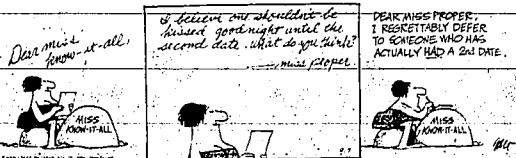 Dear miss
know-it-all,
MISS
KNOW-IT-ALL
I believe one shouldn't be
kissed goodnight until the
second date. What do you think?
miss proper
9-7
DEAR MISS PROPER;
I REGRETTABLY DEFER
TO SOMEONE WHO HAS
ACTUALLY HAD A 2nd DATE.
MISS
KNOW-IT-ALL